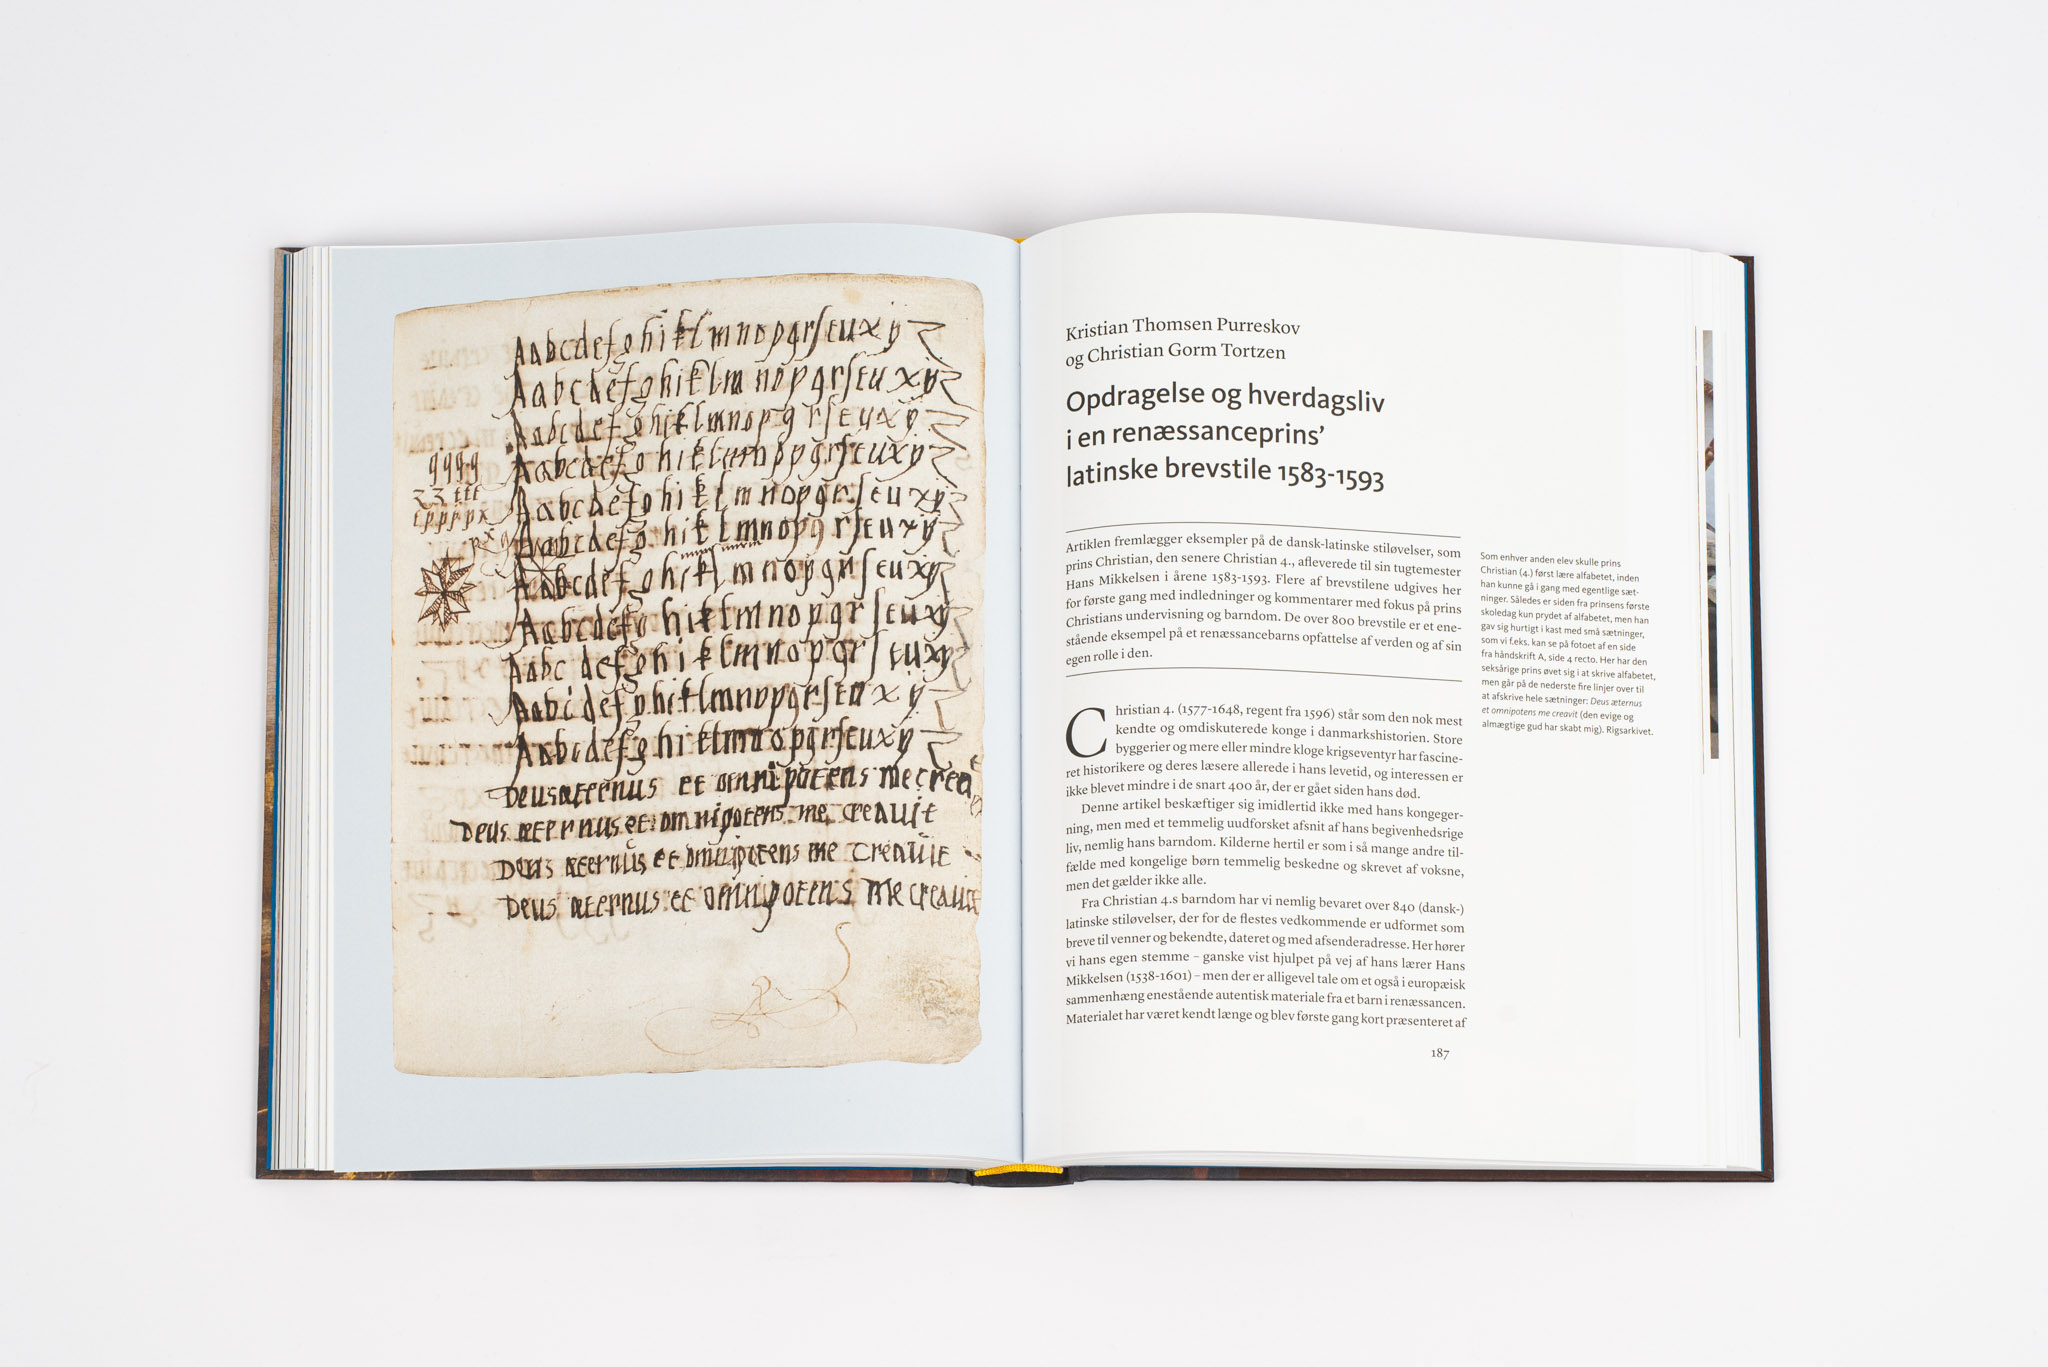 Aabcdefghiklmnopqrſtuxyz
Aabcdefghiklmnopqrſtuxyz
Aabcdefghiklmnopqrſtuxyz
Aabcdefghiklmnopqrſtuxyz
qqqq
zz ttt
Aabcdefghiklmnopqrſtuxyz
Aabcdefghiklmnopqrſtuxyz
Aabcdefghiklmnopqrſtuxyz
Aabcdefghiklmnopqrſtuxyz
Aabcdefghiklmnopqrſtuxyz
Aabcdefghiklmnopqrſtuxyz
Aabcdefghiklmnopqrſtuxyz
Deus æternus et omnipotens me crea
Deus æternus et omnipotens me creavit
Deus æternus et omnipotens me creavit
Deus æternus et omnipotens me creavit
Kristian Thomsen Purreskov
og Christian Gorm Tortzen
Opdragelse og hverdagsliv
i en renæssanceprins’
latinske brevstile 1583-1593
Artiklen fremlægger eksempler på de dansk-latinske stiløvelser, som
prins Christian, den senere Christian 4., afleverede til sin tugtemester
Hans Mikkelsen i årene 1583-1593. Flere af brevstilene udgives her
for første gang med indledninger og kommentarer med fokus på prins
Christians undervisning og barndom. De over 800 brevstile er et ene-
stående eksempel på et renæssancebarns opfattelse af verden og af sin
egen rolle i den.
Christian 4. (1577-1648, regent fra 1596) står som den nok mest
kendte og omdiskuterede konge i danmarkshistorien. Store
byggerier og mere eller mindre kloge krigseventyr har fascine-
ret historikere og deres læsere allerede i hans levetid, og interessen er
ikke blevet mindre i de snart 400 år, der er gået siden hans død.
Denne artikel beskæftiger sig imidlertid ikke med hans kongeger-
ning, men med et temmelig uudforsket afsnit af hans begivenhedsrige
liv, nemlig hans barndom. Kilderne hertil er som i så mange andre til-
fælde med kongelige børn temmelig beskedne og skrevet af voksne,
men det gælder ikke alle.
Fra Christian 4.s barndom har vi nemlig bevaret over 840 (dansk-)
latinske stiløvelser, der for de flestes vedkommende er udformet som
breve til venner og bekendte, dateret og med afsenderadresse. Her hører
vi hans egen stemme – ganske vist hjulpet på vej af hans lærer Hans
Mikkelsen (1538-1601) – men der er alligevel tale om et også i europæisk
sammenhæng enestående autentisk materiale fra et barn i renæssancen.
Materialet har været kendt længe og blev første gang kort præsenteret af
Som enhver anden elev skulle prins
Christian (4.) først lære alfabetet, inden
han kunne gå i gang med egentlige sæt-
ninger. Således er siden fra prinsens første
skoledag kun prydet af alfabetet, men han
gav sig hurtigt i kast med små sætninger,
som vi f.eks. kan se på fotoet af en side
fra håndskrift A, side 4 recto. Her har den
seksårige prins øvet sig i at skrive alfabetet,
men går på de nederste fire linjer over til
at afskrive hele sætninger: Deus æternus
et omnipotens me creavit (den evige og
almægtige gud har skabt mig). Rigsarkivet.
187